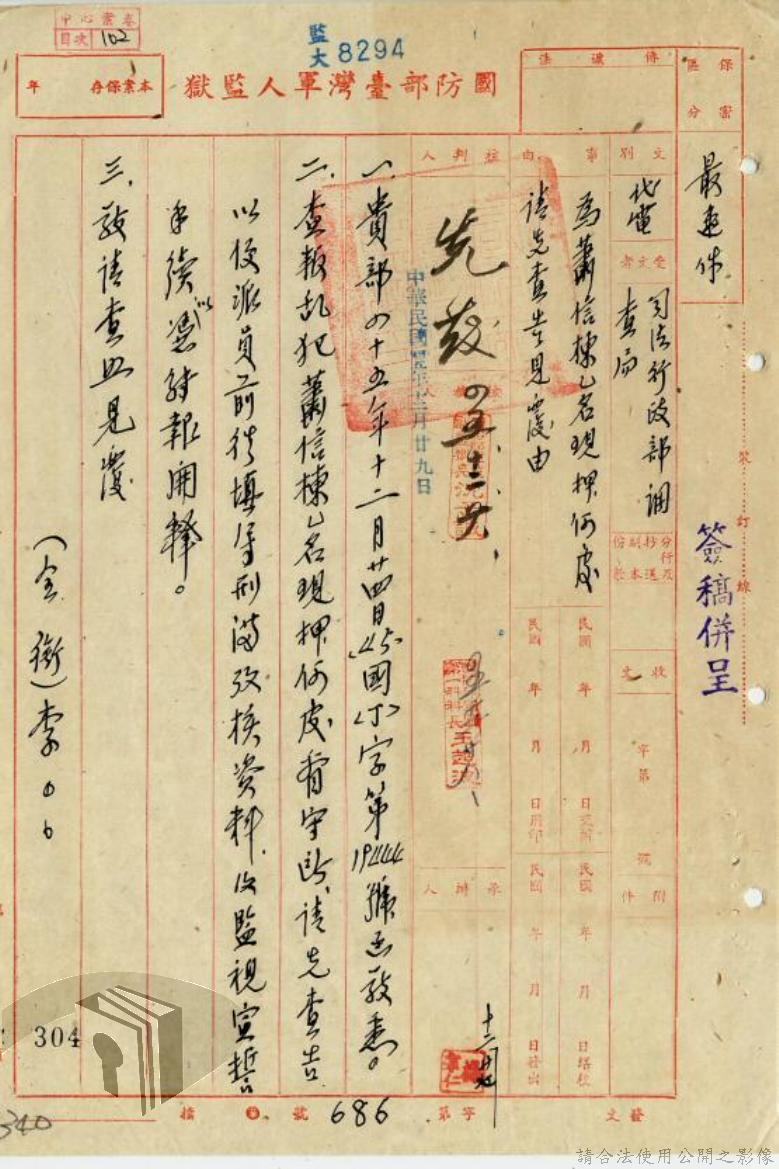 中心業卷
目次 102
監大 8294
國防部臺灣軍人監獄
保密
區分
最速件
簽稿併呈
裝訂線
文別
代電
受文者
司法行政部調
查局
事由
為蕭信棟乙名現押何處
請先查告見覆由
批判人
先發
中華民國四五年十二月廿九日
一、貴部四十五年十二月廿四日(45)國(丁)字第19444號函敬悉。
二、查叛乱犯蕭信棟乙名現押何處看守所,請先查告
以便派員前往填具刑滿考核資料,及監視宣誓
手續以憑轉報開釋。
三、敬請查照見覆
(全銜)李〇〇
收文
字第
號
附件
民國 年 月 日
承辦人
發文
字第
686
號
檔
304
340
本案保存
年
請合法使用公開之影像